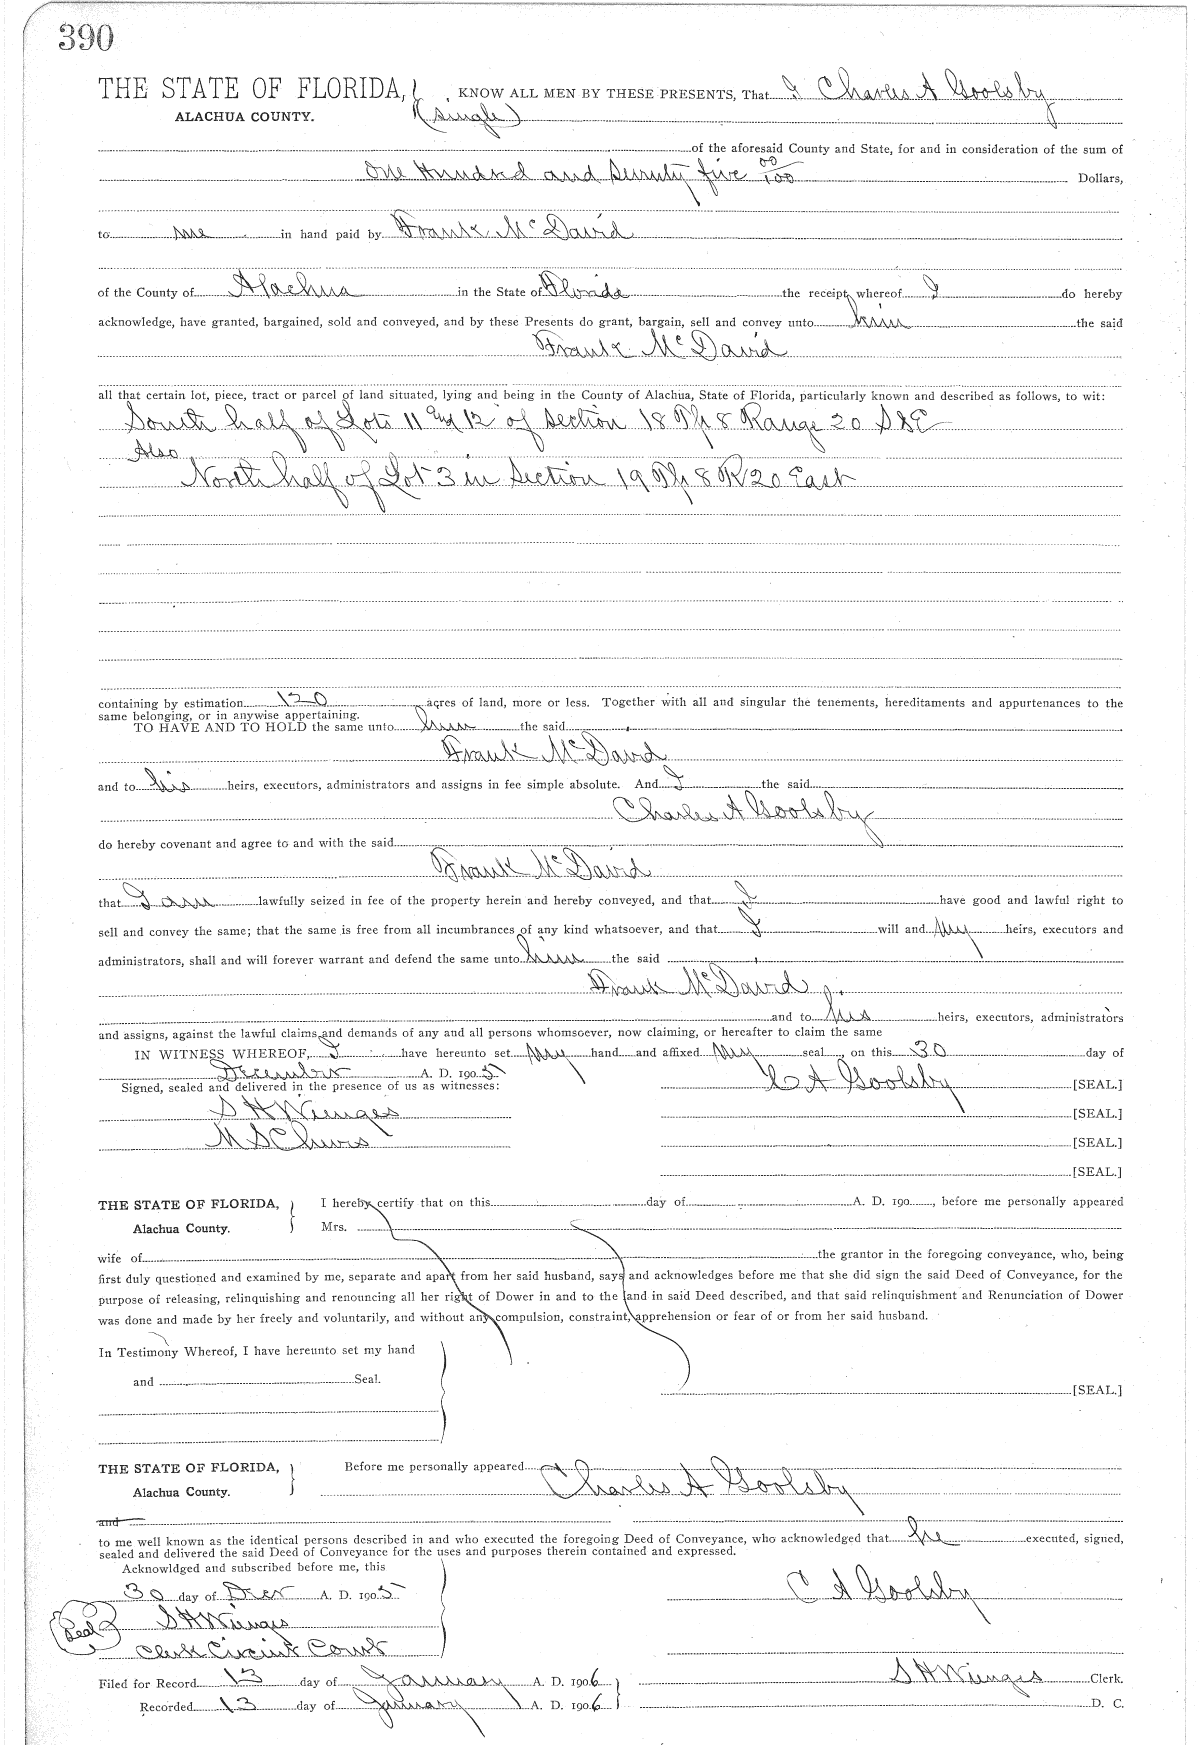 390
THE STATE OF FLORIDA, KNOW ALL MEN BY THESE PRESENTS, That I Charles A Goolsby
ALACHUA COUNTY. (single)
of the aforesaid County and State, for and in consideration of the sum of
One Hundred and Seventy five 00/100 Dollars,
to me in hand paid by Frank McDavid
of the County of Alachua in the State of Florida the receipt whereof I do hereby
acknowledge, have granted, bargained, sold and conveyed, and by these Presents do grant, bargain, sell and convey unto him the said
Frank McDavid
all that certain lot, piece, tract or parcel of land situated, lying and being in the County of Alachua, State of Florida, particularly known and described as follows, to wit:
South half of Lots 11 and 12 of section 18 Tp 8 Range 20 S & E
Also
North half of Lot 3 in Section 19 Tp 8 R 20 East
containing by estimation 120 acres of land, more or less. Together with all and singular the tenements, hereditaments and appurtenances to the
same belonging, or in anywise appertaining.
TO HAVE AND TO HOLD the same unto him the said
Frank McDavid
and to his heirs, executors, administrators and assigns in fee simple absolute. And I the said
Charles A Goolsby
do hereby covenant and agree to and with the said
Frank McDavid
that I am lawfully seized in fee of the property herein and hereby conveyed, and that I have good and lawful right to
sell and convey the same; that the same is free from all incumbrances of any kind whatsoever, and that I will and My heirs, executors and
administrators, shall and will forever warrant and defend the same unto him the said
Frank McDavid
and to his heirs, executors, administrators
and assigns, against the lawful claims and demands of any and all persons whomsoever, now claiming, or hereafter to claim the same
IN WITNESS WHEREOF, I have hereunto set My hand and affixed My seal, on this 30 day of
December A. D. 1905
Signed, sealed and delivered in the presence of us as witnesses: C A Goolsby [SEAL.]
S H Wienges [SEAL.]
M S [SEAL.]
[SEAL.]
THE STATE OF FLORIDA, I hereby certify that on this day of A. D. 190 , before me personally appeared
Alachua County. Mrs.
wife of the grantor in the foregoing conveyance, who, being
first duly questioned and examined by me, separate and apart from her said husband, says and acknowledges before me that she did sign the said Deed of Conveyance, for the
purpose of releasing, relinquishing and renouncing all her right of Dower in and to the land in said Deed described, and that said relinquishment and Renunciation of Dower
was done and made by her freely and voluntarily, and without any compulsion, constraint, apprehension or fear of or from her said husband.
In Testimony Whereof, I have hereunto set my hand
and Seal. [SEAL.]
THE STATE OF FLORIDA, Before me personally appeared Charles A Goolsby
Alachua County.
and
to me well known as the identical persons described in and who executed the foregoing Deed of Conveyance, who acknowledged that he executed, signed,
sealed and delivered the said Deed of Conveyance for the uses and purposes therein contained and expressed.
Acknowldged and subscribed before me, this
30 day of Decr A. D. 1905 C A Goolsby
Seal S H Wienges
Clerk Circuit Court
Filed for Record 13 day of January A. D. 1906 S H Wienges Clerk.
Recorded 13 day of January A. D. 1906 D. C.